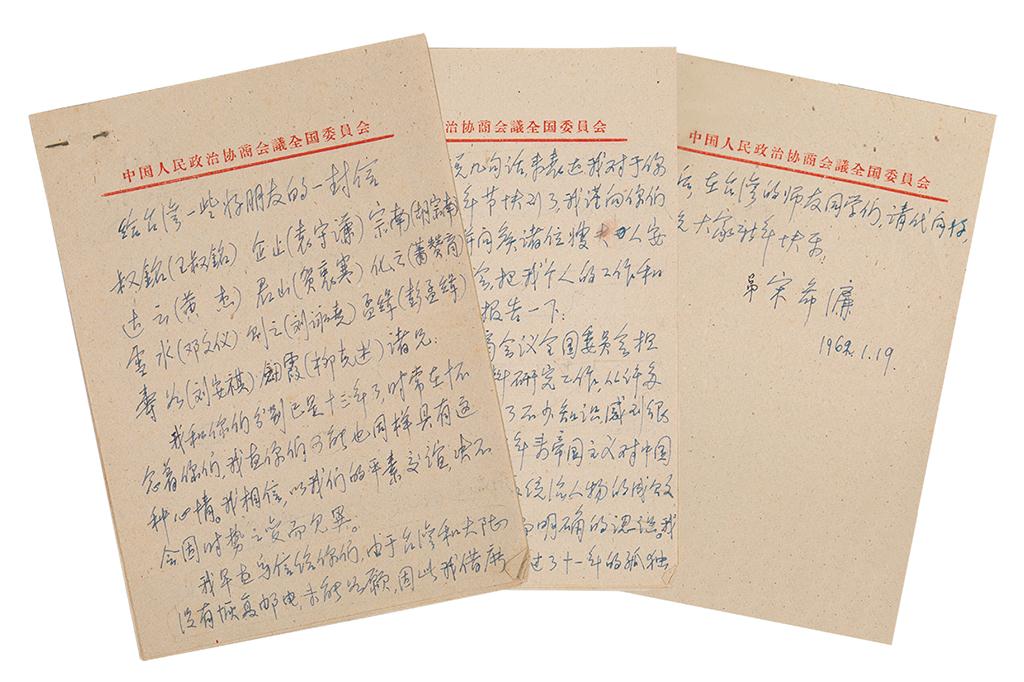 中国人民政治协商会議全国委員会
给台湾一些好朋友的一封信
叔銘(王叔銘) 企止(袁守谦) 宗南(胡宗南)
达云(黄杰) 君山(贺衷寒) 化之(萧赞育)
雪水(邓文仪) 则之(刘咏尧) 孟緝(彭孟緝)
寿如(刘安祺) 劍霞(柳克述) 诸兄:
我和你们分别已是十三年了,时常在怀
念着你们,我想你们可能也同样具有这
种心情。我相信,以我们的平素交谊,决不
会因时势之变而见異。
我早想写信给你们,由于台湾和大陆
没有恢复邮电,未能如愿,因此我借
治协商会議全国委員会
几句话来表达我对于你
年节快到了,我谨向你们
问候诸位嫂夫人安
会,把我个人的工作和
报告一下:
会议全国委员会担
料研究工作,从许多
了不少知识,感到很
年来帝国主义对中国
统治人物的成败
而明确的认识。我
过了十一年的孤独
中国人民政治协商会議全国委員会
在台湾的师友同学们,请代问好
大家新年快乐。
弟宋希濂
1962.1.19.